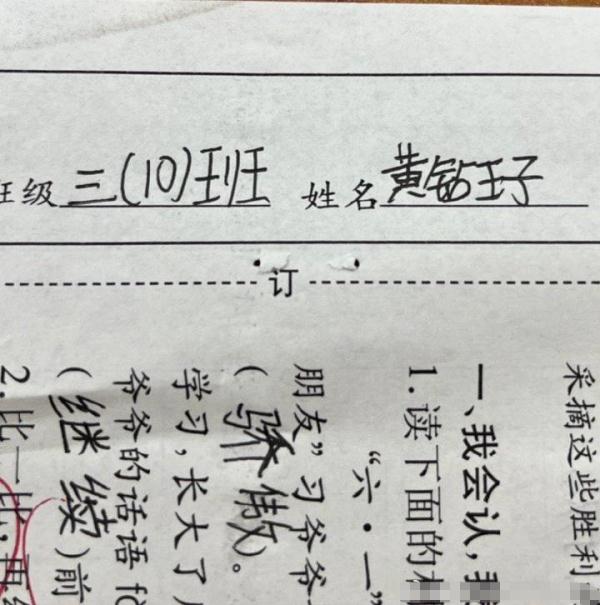 班级 三(10)班 姓名 黄钻玨子
订
采摘这些胜利
一、我会认,我
1.读下面的
“六·一”
朋友”习爷爷
(骄傲)。
学习,长大了
爷爷的话语
(继续)前
2.比一比,再